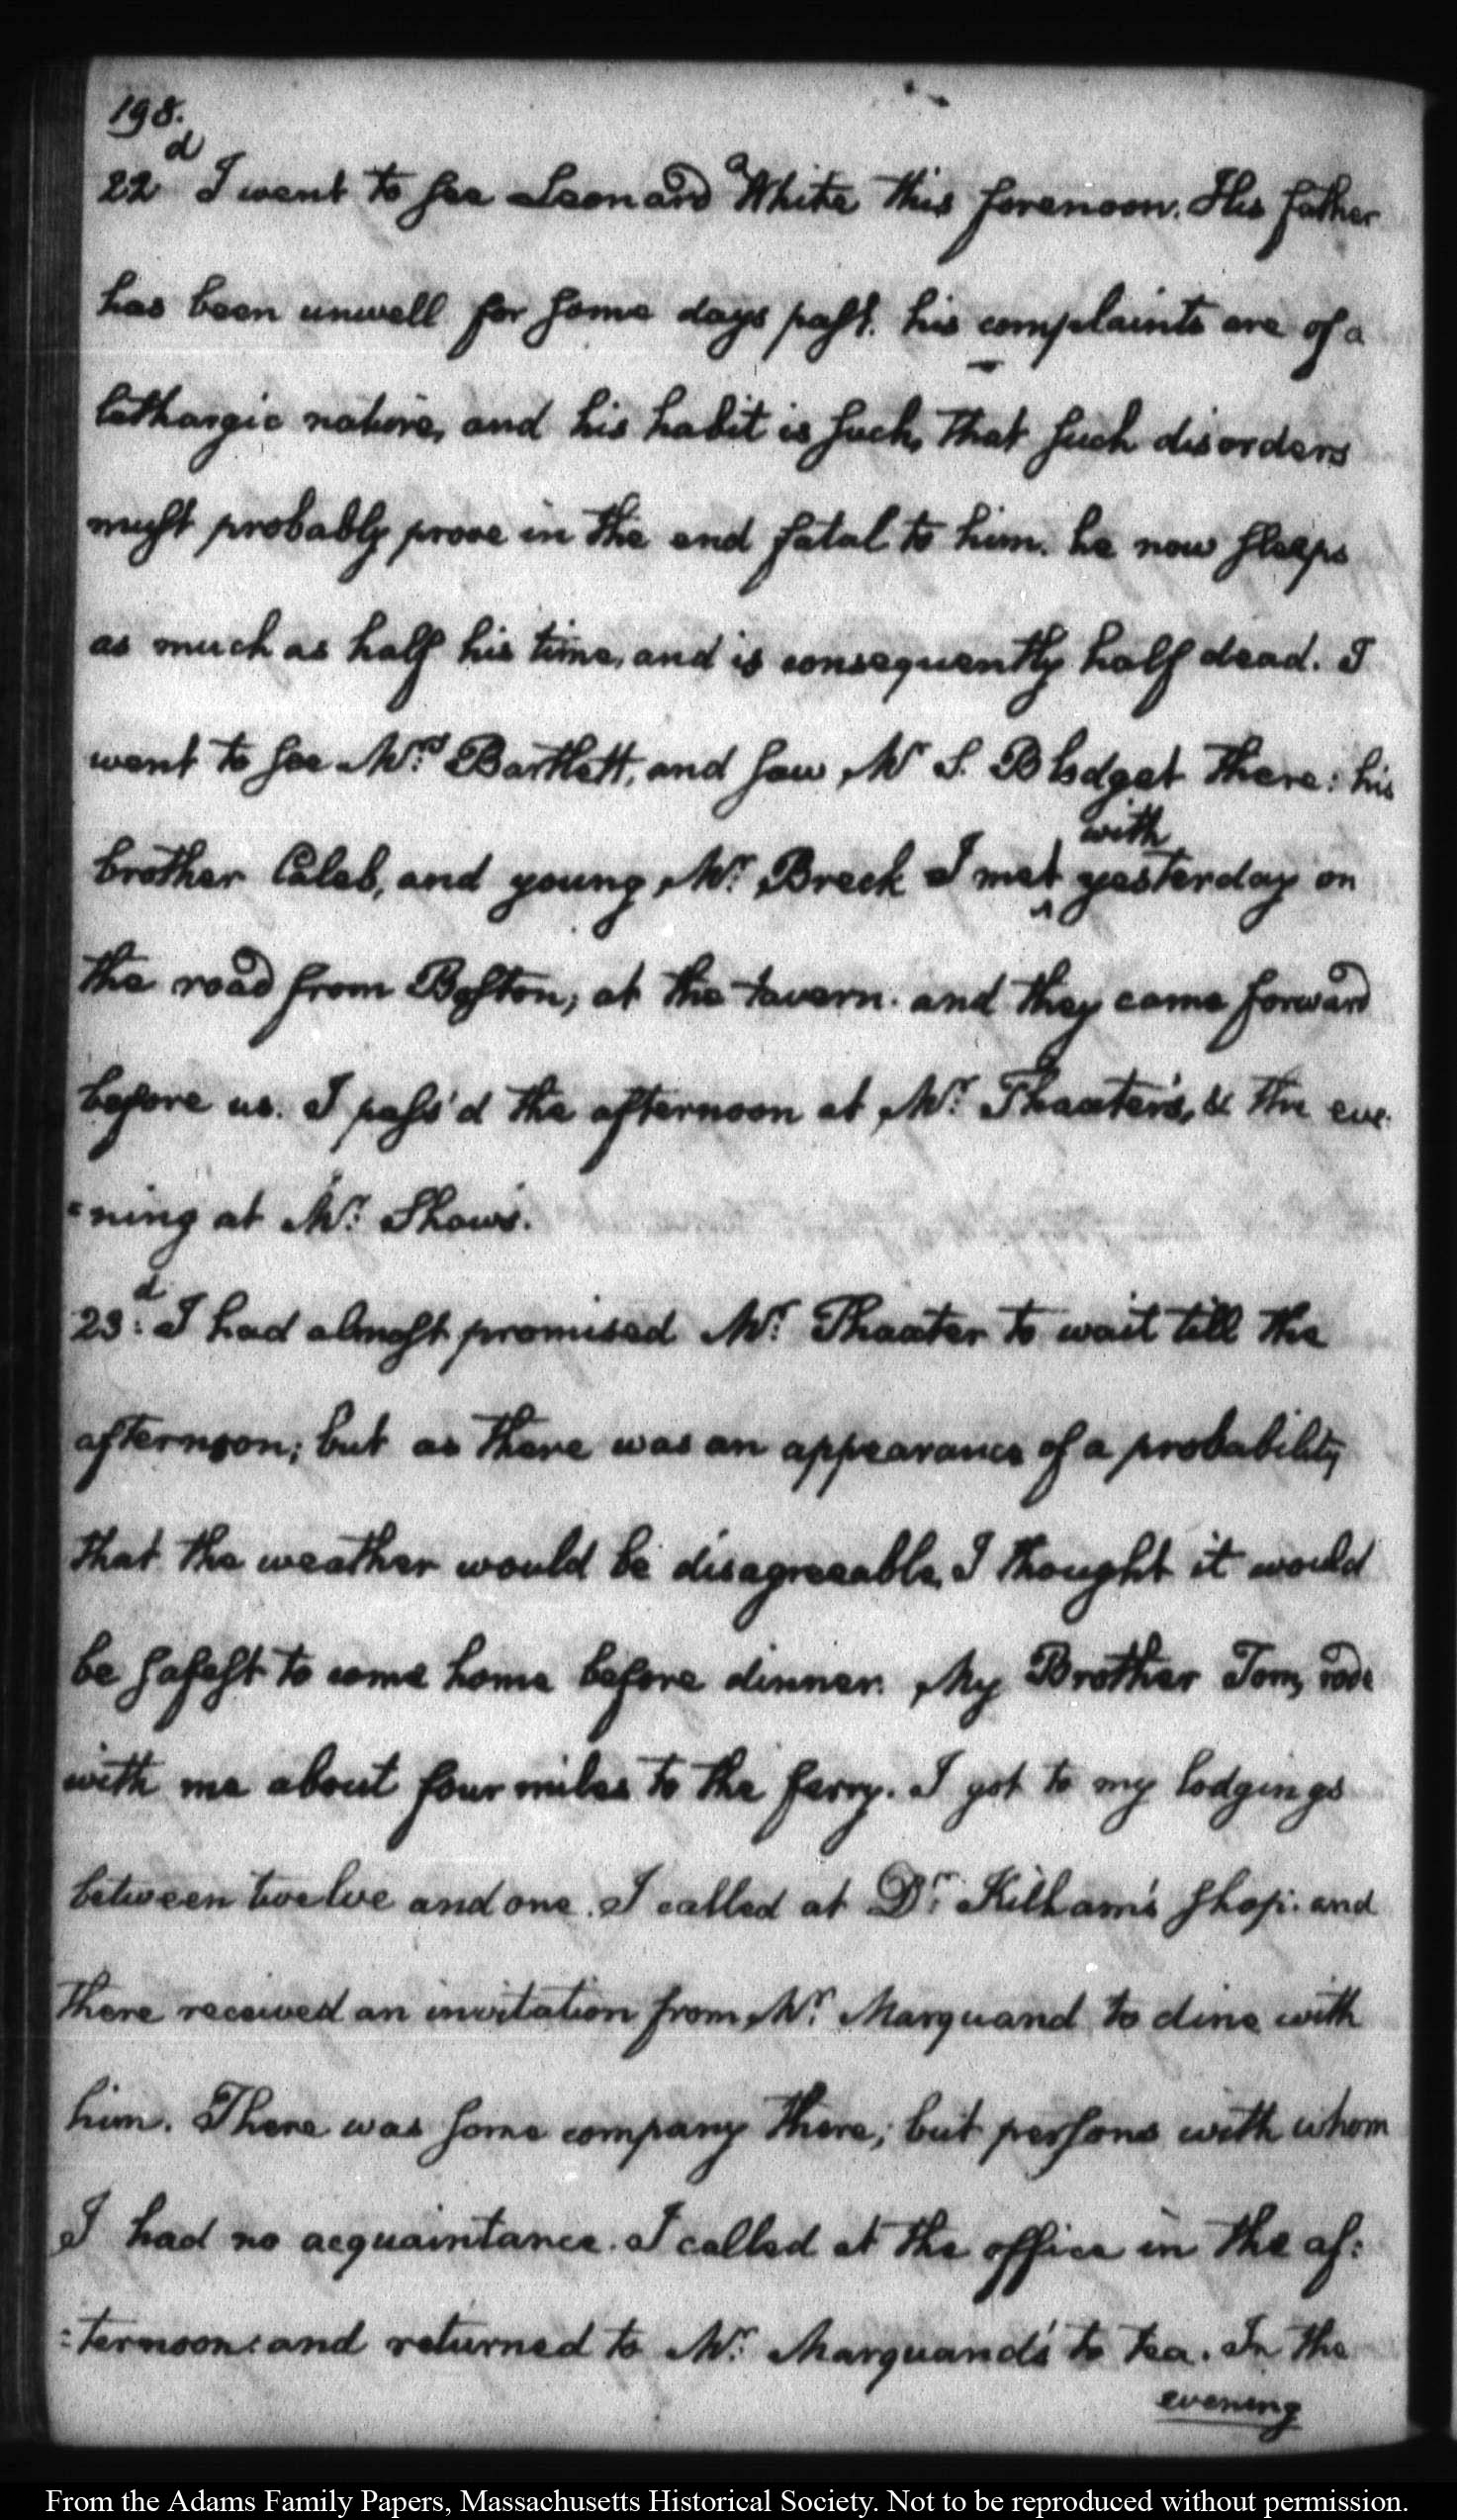 198.
22d I went to see Leonard White this forenoon. His father
has been unwell for some days past. his complaints are of a
lethargic nature, and his habit is such, that such disorders
must probably prove in the end fatal to him. he now sleeps
as much as half his time, and is consequently half dead. I
went to see Mrs. Bartlett, and saw Mr S. Blodget there: his
with
brother Caleb, and young Mr. Breck I met ^ yesterday on
the road from Boston, at the tavern. and they came forward
before us. I pass'd the afternoon at Mr. Thaxter's, & the eve:
=ning at Mr. Shaw's.
23d. I had almost promised Mr. Thaxter to wait till the
afternoon; but as there was an appearance of a probability
that the weather would be disagreeable, I thought it would
be safest to come home before dinner. My Brother Tom, rode
with me about four miles to the ferry. I got to my lodgings
between twelve and one. I called at Dr. Kilham's shop: and
there received an invitation from Mr. Marquand to dine with
him. There was some company there; but persons with whom
I had no acquaintance. I called at the office in the af:
:ternoon: and returned to Mr. Marquand's to tea. In the
evening
From the Adams Family Papers, Massachusetts Historical Society. Not to be reproduced without permission.